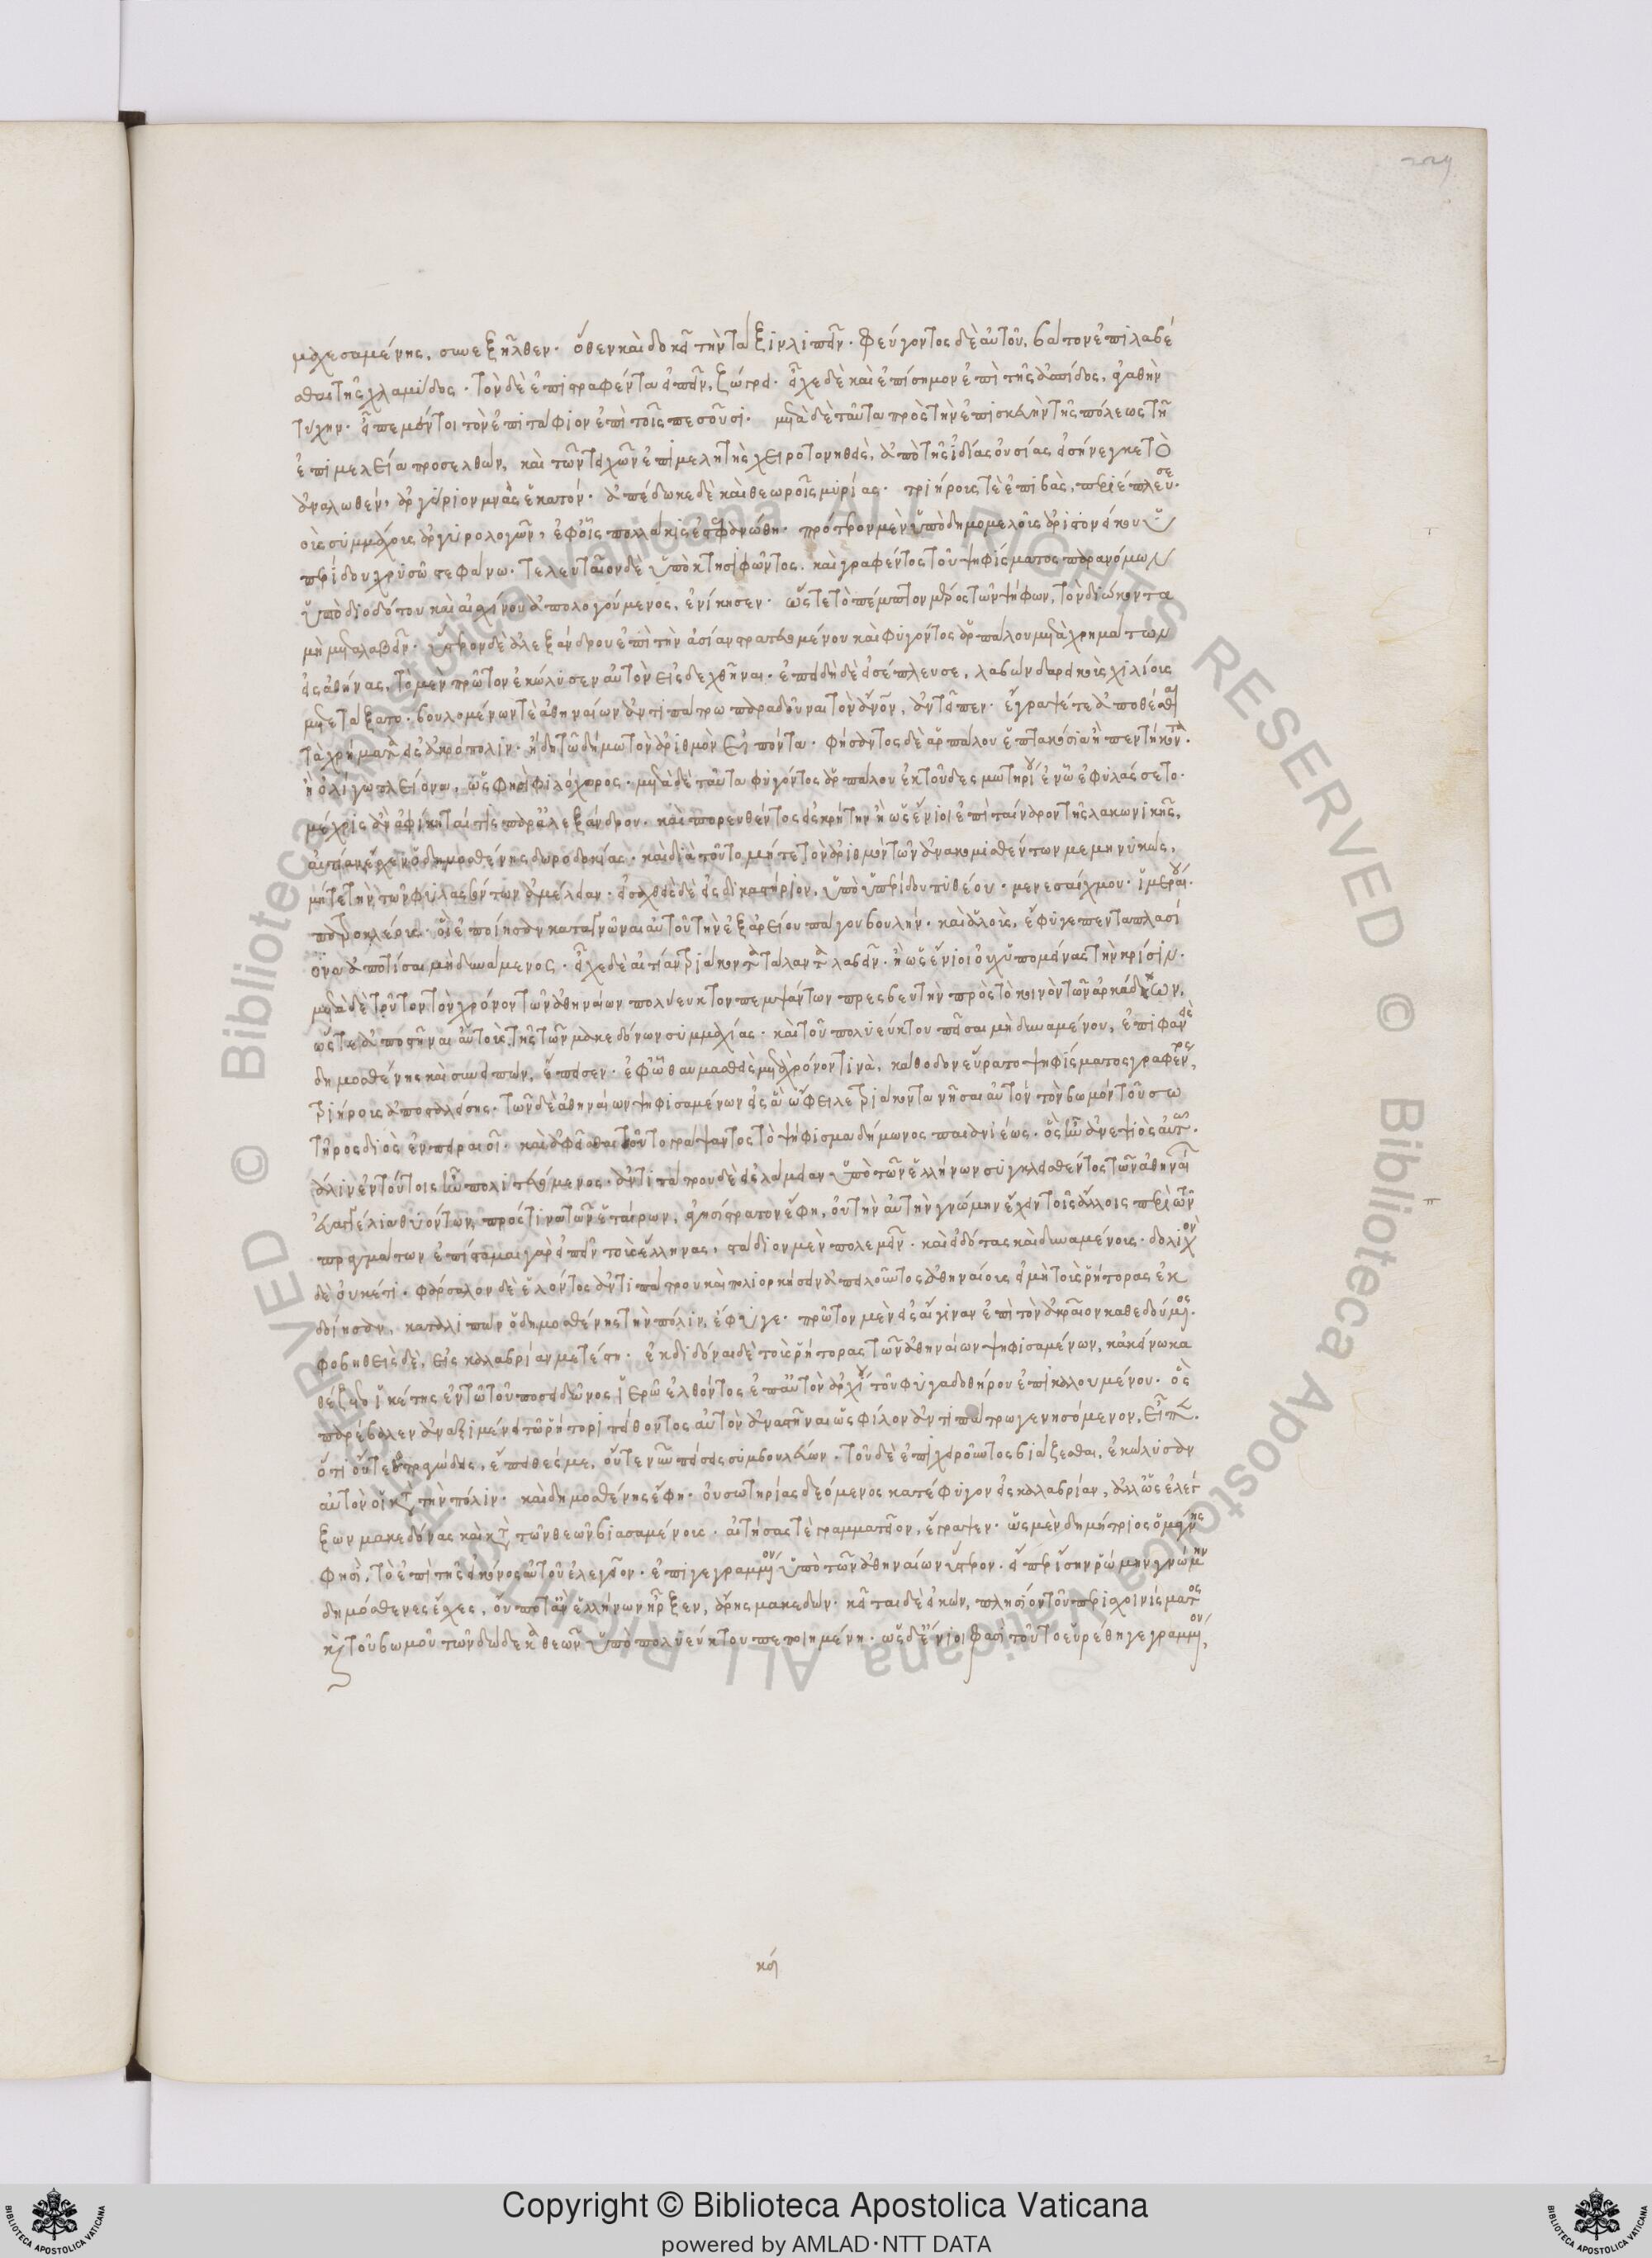 μαχεσαμένης, συνεξῆλθεν. ὅθεν καὶ δοκεῖ τὴν τάξιν λιπεῖν. φεύγοντος δὲ αὐτοῦ, βάτον ἐπιλαβέ
σθαι τῆς χλαμύδος. τὸν δὲ ἐπιστραφέντα εἰπεῖν, ζώγρει. εἶχε δὲ καὶ ἐπίσημον ἐπὶ τῆς ἀσπίδος, ἀγαθὴν
τύχην. εἶπε μέντοι τὸν ἐπιτάφιον ἐπὶ τοῖς πεσοῦσι. μετὰ δὲ ταῦτα πρὸς τὴν ἐπισκευὴν τῆς πόλεως τῇ
ἐπιμελείᾳ προσελθὼν, καὶ τῶν τειχῶν ἐπιμελητὴς χειροτονηθεὶς, ἀπὸ τῆς ἰδίας οὐσίας εἰσήνεγκε τὸ
ἀναλωθὲν, ἀργύριον μνᾶς ἑκατόν. ἀπέδωκε δὲ καὶ θεωροῖς μυρίας. τριήρους τὲ ἐπιβὰς, περιέπλευσε
τοὺς συμμάχους ἀργυρολογῶν, ἐφ' οἷς πολλάκις ἐστεφανώθη. πρότερον μὲν ὑπὸ δημομελοῦς ἀριστονίκου ὑ
περίδου χρυσῷ στεφάνῳ. τελευταῖον δὲ ὑπὸ κτησιφῶντος. καὶ γραφέντος τοῦ ψηφίσματος παρανόμων
ὑπὸ διοδότου καὶ αἰσχίνου ἀπολογούμενος, ἐνίκησεν. ὥστε τὸ πέμπτον μέρος τῶν ψήφων, τὸν διώκοντα
μὴ μεταλαβεῖν. ὕστερον δὲ ἀλεξάνδρου ἐπὶ τὴν ἀσίαν στρατευομένου καὶ φυγόντος ἁρπάλου μετὰ χρημάτων
εἰς ἀθήνας, τὸ μὲν πρῶτον ἐκώλυσεν αὐτὸν εἰσδεχθῆναι. ἐπειδὴ δὲ εἰσέπλευσε, λαβὼν δαρεικοὺς χιλίους
μετετάξατο. βουλομένων τὲ ἀθηναίων ἀντιπάτρῳ παραδοῦναι τὸν ἄνον, ἀντεῖπεν. ἔγραψέ τε ἀποθέσθαι
τὰ χρήματα εἰς ἀκρόπολιν. ἤδη τῷ δήμῳ τὸν ἀριθμὸν εἰπόντα. φήσαντος δὲ ἁρπάλου ἑπτακόσια ἢ πεντήκοντα.
ἢ ὀλίγῳ πλείονα, ὥς φησὶ φιλόχορος. μετὰ δὲ ταῦτα φυγόντος ἁρπάλου ἐκ τοῦ δεσμωτηρίου ἐν ᾧ ἐφυλάσσετο.
μέχρις ἂν ἀφίκηταί τις παρ' ἀλεξάνδρου. καὶ πορευθέντος εἰς κρήτην ἢ ὡς ἔνιοι ἐπὶ ταίναρον τῆς λακωνικῆς,
αἰτίαν ἔσχεν ὁ δημοσθένης δωροδοκίας. καὶ διὰ τοῦτο μήτε τὸν ἀριθμὸν τῶν ἀνακομισθέντων μεμηνυκὼς,
μήτε τὴν τῶν φυλασσόντων ἀμέλειαν. εἰσαχθεὶς δὲ εἰς δικαστήριον, ὑπὸ ὑπερίδου πυθέου. μενεσαίχμου. ἱμεραίου.
πατροκλέους. οἳ ἐποίησαν καταγνῶναι αὐτοῦ τὴν ἐξ ἀρείου πάγου βουλήν. καὶ ἁλοὺς, ἔφυγε πενταπλασί
ονα ἀποτίσαι μὴ δυνάμενος. εἶχε δὲ αἰτίαν τριάκοντα τάλαντα λαβεῖν. ἢ ὡς ἔνιοι οὐχ ὑπομείνας τὴν κρίσιν.
μετὰ δὲ τοῦτον τὸν χρόνον τῶν ἀθηναίων πολύευκτον πεμψάντων πρεσβευτὴν πρὸς τὸ κοινὸν τῶν ἀρκάδων,
ὥστε ἀποστῆναι αὐτοὺς τῆς τῶν μακεδόνων συμμαχίας. καὶ τοῦ πολυεύκτου πεῖσαι μὴ δυναμένου, ἐπιφανεὶς
δημοσθένης καὶ συνειπὼν, ἔπεισεν. ἐφ' ᾧ θαυμασθεὶς μετὰ χρόνον τινὰ, κάθοδον εὕρατο ψηφίσματος γραφέντος,
τριήρους ἀποσταλείσης. τῶν δὲ ἀθηναίων ψηφισαμένων εἰς ἃ ὤφειλε τριάκοντα κοσμῆσαι αὐτὸν τὸν βωμὸν τοῦ σω
τῆρος διὸς ἐν πειραιεῖ. καὶ ἀφεῖσθαι τοῦτο γράψαντος τὸ ψήφισμα δήμωνος παιανιέως. ὃς ἦν ἀνεψιὸς αὐτῶ.
πάλιν ἐν τούτοις ἦν πολιτευόμενος. ἀντιπάτρου δὲ εἰς λαμίαν ὑπὸ τῶν ἑλλήνων συγκλεισθέντος τῶν ἀθηναίων
εὐαγγέλια θυόντων, πρός τινα τῶν ἑταίρων, ἀγησίστρατον ἔφη, οὐ τὴν αὐτὴν γνώμην ἔχειν τοῖς ἄλλοις περὶ τῶν
πραγμάτων ἐπίσταμαι γὰρ εἰπεῖν τοὺς ἕλληνας, στάδιον μὲν πολεμεῖν. καὶ εἰδότας καὶ δυναμένους. δολιχὸν
δὲ οὐκέτι. φάρσαλον δὲ ἑλόντος ἀντιπάτρου καὶ πολιορκήσειν ἀπειλοῦντος ἀθηναίους εἰ μὴ τοὺς ῥήτορας ἐκ
δοίησαν, καταλιπὼν ὁ δημοσθένης τὴν πόλιν, ἔφυγε. πρῶτον μὲν εἰς αἴγιναν ἐπὶ τὸν αἰάκειον καθεδούμενος.
φοβηθεὶς δὲ, εἰς καλαβρίαν μετέστη. ἐκδιδόναι δὲ τοὺς ῥήτορας τῶν ἀθηναίων ψηφισαμένων, κἀκεῖνον κα
θέζετο ἱκέτης ἐν τῷ τοῦ ποσειδῶνος ἱερῷ ἐλθόντος ἐπ' αὐτὸν ἀρχίου τοῦ φυγαδοθήρου ἐπικαλουμένου. ὃς
ὅτι οὔτε τραγωδεῖς, ἔπειθές με, οὔτε νῦν πείσεις συμβουλεύων. τοῦ δὲ ἐπιχειροῦντος βιάζεσθαι, ἐκώλυσαν
αὐτὸν οἱ κατὰ τὴν πόλιν. καὶ δημοσθένης ἔφη. οὐ σωτηρίας δεόμενος κατέφυγον εἰς καλαβρίαν, ἀλλ' ὡς ἐλέγ
ξων μακεδόνας καὶ κατὰ τῶν θεῶν βιασαμένους. αἰτήσας τὲ γραμματεῖον, ἔγραψεν. ὡς μὲν δημήτριος ὁ μάγνης
φησὶ, τὸ ἐπὶ τῆς εἰκόνος αὐτοῦ ἐλεγεῖον. ἐπιγεγραμμένον ὑπὸ τῶν ἀθηναίων ὕστερον. εἴπερ ἴσην ῥώμην γνώμην
δημόσθενες ἔσχες, οὔποτ' ἂν ἑλλήνων ἦρξεν, ἄρης μακεδών. κεῖται δὲ εἰκὼν, πλησίον τοῦ περισχοινίσματος
καὶ τοῦ βωμοῦ τῶν δώδεκα θεῶν ὑπὸ πολυεύκτου πεποιημένη. ὡς δ' ἔνιοι φασὶ τοῦτο εὑρέθη γεγραμμένον,